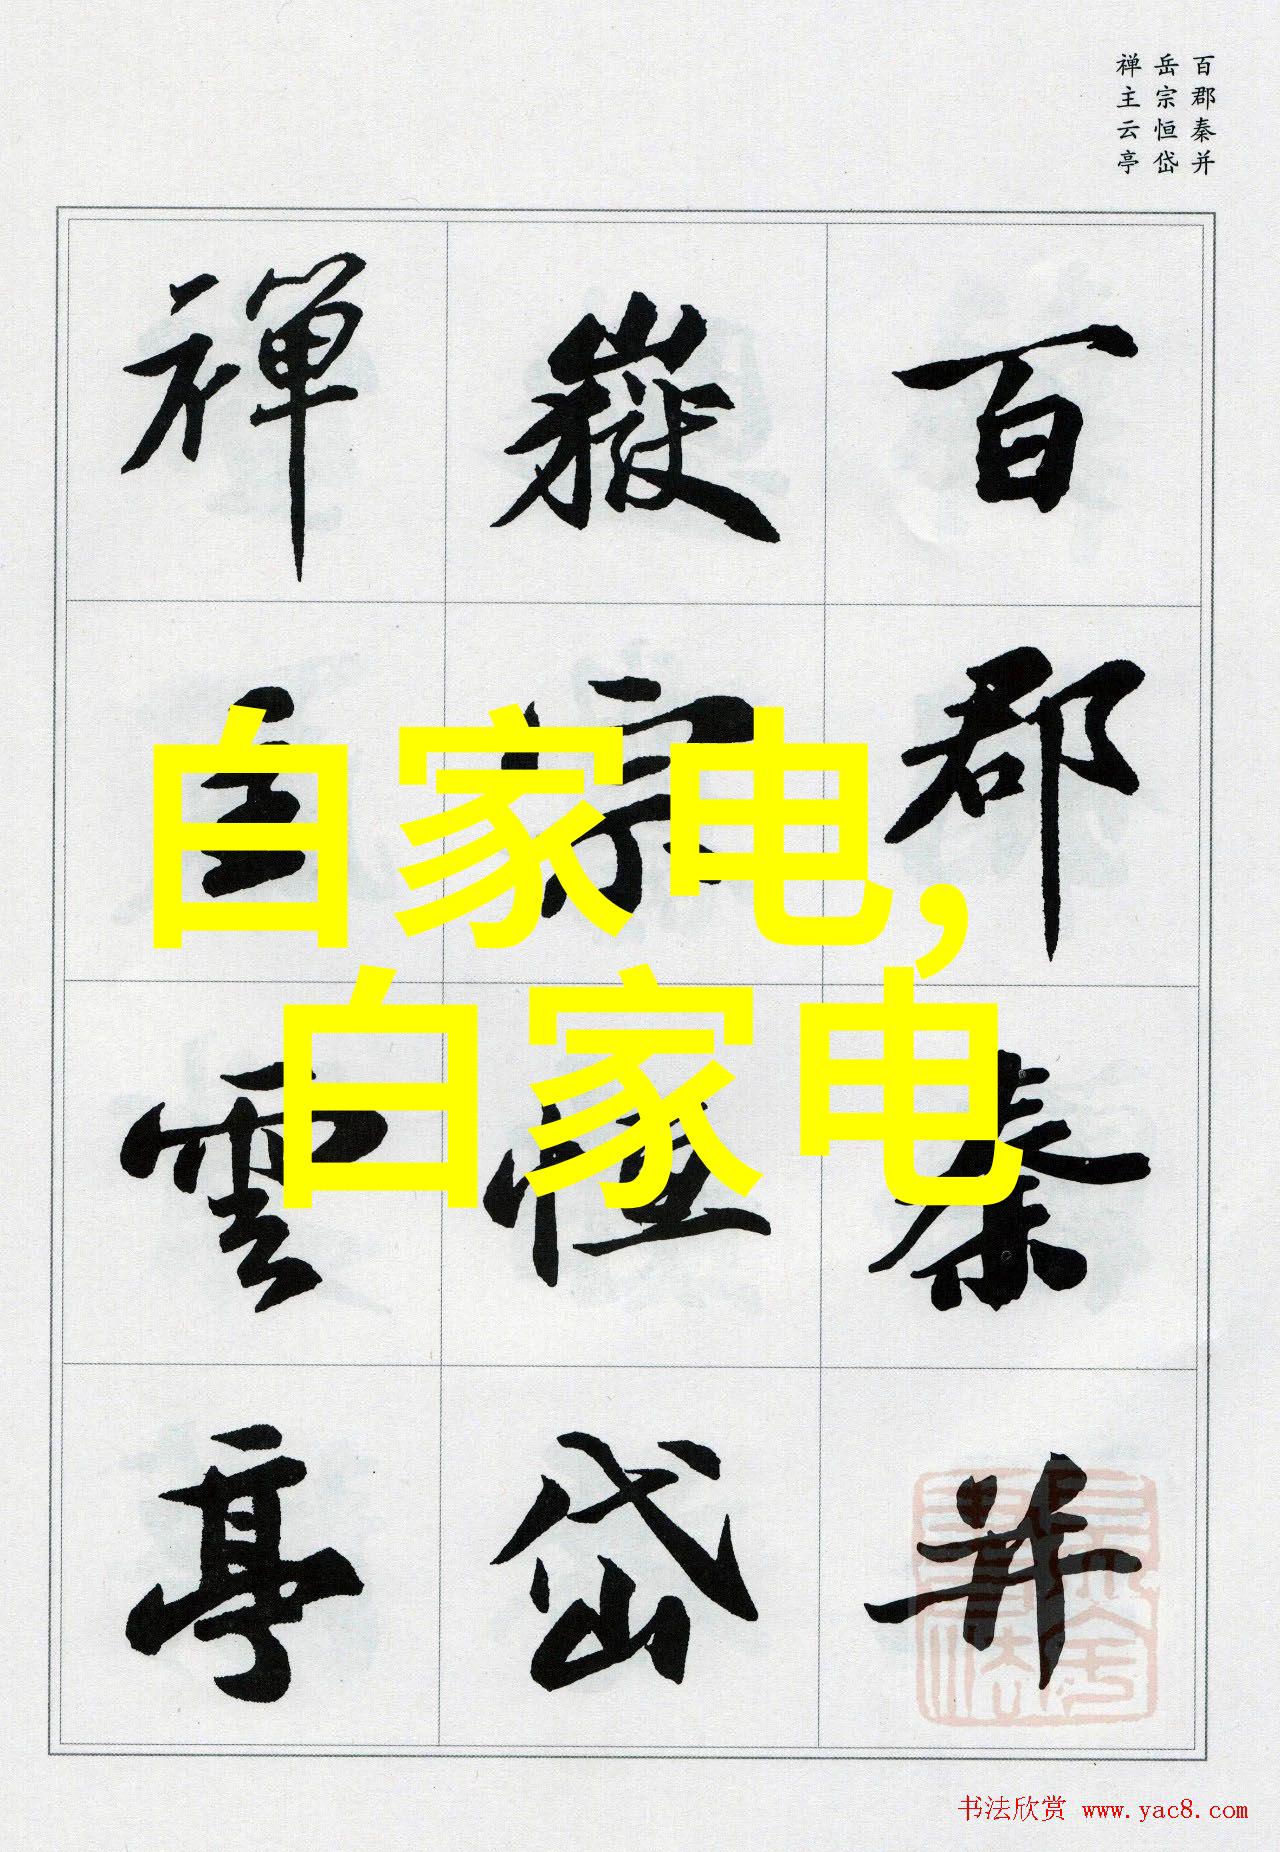 百郡秦并
岳宗恒岱
禅主云亭
百郡秦并
嶽宗恒岱
禪主雲亭
自家电,
白家电
书法欣赏 www.yac8.com